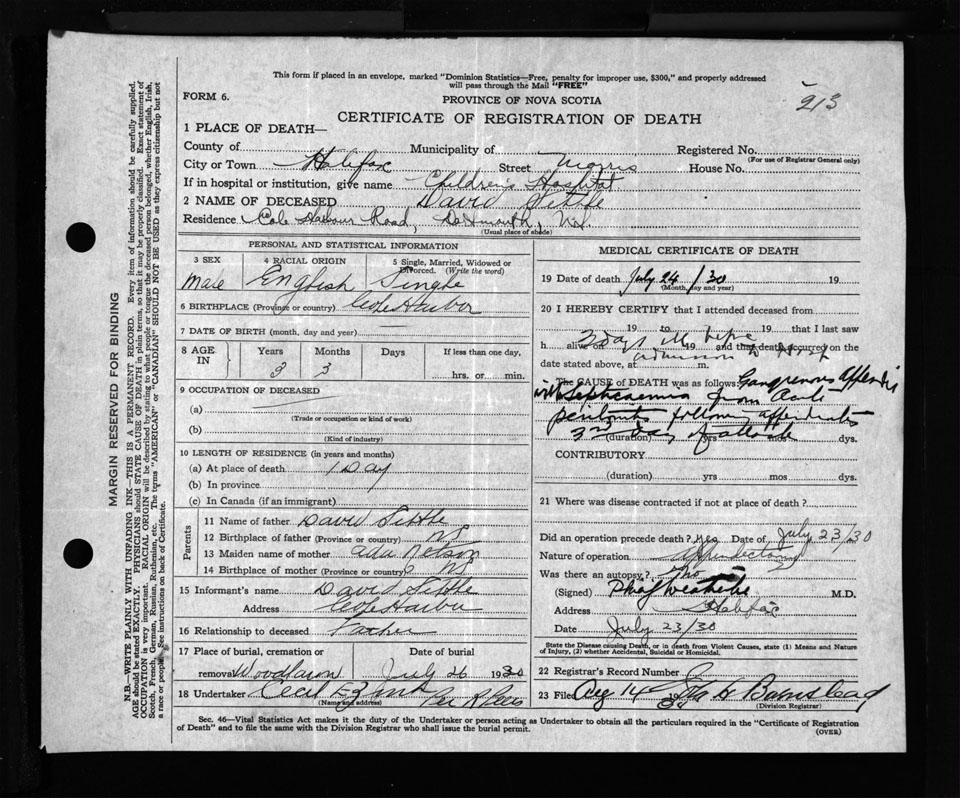 This form if placed in an envelope, marked "Dominion Statistics—Free, penalty for improper use, $300," and properly addressed
will pass through the Mail "FREE"
FORM 6.
PROVINCE OF NOVA SCOTIA
213
CERTIFICATE OF REGISTRATION OF DEATH
1 PLACE OF DEATH—
County of Municipality of Registered No.
(For use of Registrar General only)
City or Town Halifax Street Morris House No.
If in hospital or institution, give name Children's Hospital
2 NAME OF DECEASED David
Residence Cole Harbour Road, Dartmouth, N.S.
(Usual place of abode)
PERSONAL AND STATISTICAL INFORMATION
3 SEX 4 RACIAL ORIGIN 5 Single, Married, Widowed or Divorced. (Write the word)
Male English Single
6 BIRTHPLACE (Province or country) Cole Harbor
7 DATE OF BIRTH (month, day and year)
8 AGE IN Years Months Days If less than one day,
3 3 hrs. or min.
9 OCCUPATION OF DECEASED
(a)
(Trade or occupation or kind of work)
(b)
(Kind of industry)
10 LENGTH OF RESIDENCE (in years and months)
(a) At place of death 1 Day
(b) In province
(c) In Canada (if an immigrant)
Parents
11 Name of father David
12 Birthplace of father (Province or country) NS
13 Maiden name of mother Ada Nelson
14 Birthplace of mother (Province or country) NS
15 Informant's name David
Address Cole Harbor
16 Relationship to deceased Father
17 Place of burial, cremation or removal Date of burial
Woodlawn July 26 1930
18 Undertaker Cecil E
(Name and address)
MEDICAL CERTIFICATE OF DEATH
19 Date of death July 24/30 19
(Month, day and year)
20 I HEREBY CERTIFY that I attended deceased from
19 to 19 that I last saw
3 days ill before
h alive on 19 and that death occurred on the
admission to Hosp
date stated above, at m.
The CAUSE OF DEATH was as follows: Gangrenous Appendix
with septicaemia from acute
peritonitis following appendicitis
3rd day of attack
(duration) yrs mos dys.
CONTRIBUTORY
(duration) yrs mos dys.
21 Where was disease contracted if not at place of death?
Did an operation precede death? Yes Date of July 23/30
Nature of operation Appendectomy
Was there an autopsy? No
(Signed) M.D.
Address Halifax
Date July 23/30
State the Disease causing Death, or in death from Violent Causes, state (1) Means and Nature
of Injury, (2) whether Accidental, Suicidal or Homicidal.
22 Registrar's Record Number
23 Filed Aug 14 30
(Division Registrar)
Sec. 46—Vital Statistics Act makes it the duty of the Undertaker or person acting as Undertaker to obtain all the particulars required in the "Certificate of Registration
of Death" and to file the same with the Division Registrar who shall issue the burial permit.
(OVER)
MARGIN RESERVED FOR BINDING
N.B.—WRITE PLAINLY WITH UNFADING INK—THIS IS A PERMANENT RECORD. Every item of information should be carefully supplied.
AGE should be stated EXACTLY. PHYSICIANS should STATE CAUSE OF DEATH in plain terms, so that it may be properly classified. Exact statement of
OCCUPATION is very important. RACIAL ORIGIN will be described by stating to what people or tongue the deceased person belonged, whether English, Irish,
Scotch, French, German, Russian, Ruthenian, etc. The terms "AMERICAN" or "CANADIAN" SHOULD NOT BE USED as they express citizenship but not
a race or people. See instructions on back of Certificate.